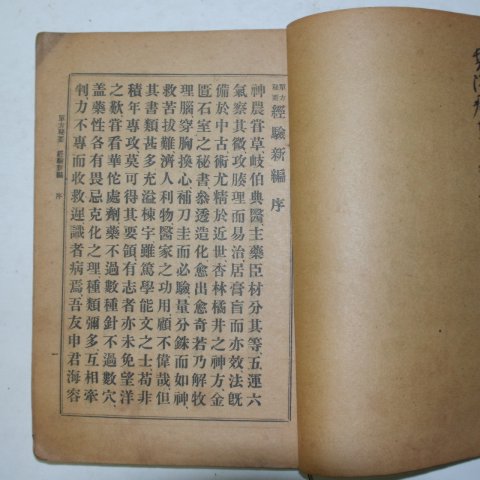 單方秘要 經驗新編 序
神農甞草岐伯典醫主藥臣材分其等五運六
氣察其微攻腠理而易治居膏肓而亦效法旣
備於中古術尤精於近世杏林橘井之神方金
匱石室之秘書叅透造化愈出愈奇若乃解牧
理腦穿胸換心補刀圭而必驗量分銖而如神
救苦拔難濟人利物醫家之功用顧不偉哉但
其書類甚多充溢棟宇雖篤學能文之士苟非
積年專攻莫可得其要領有志者亦未免望洋
之歎甞看華佗處劑藥不過數種針不過數穴
盖藥性各有畏忌克化之理種類彌多互相牽
制力不專而收救遲識者病焉吾友申君海容
單方秘要 經驗新編 序